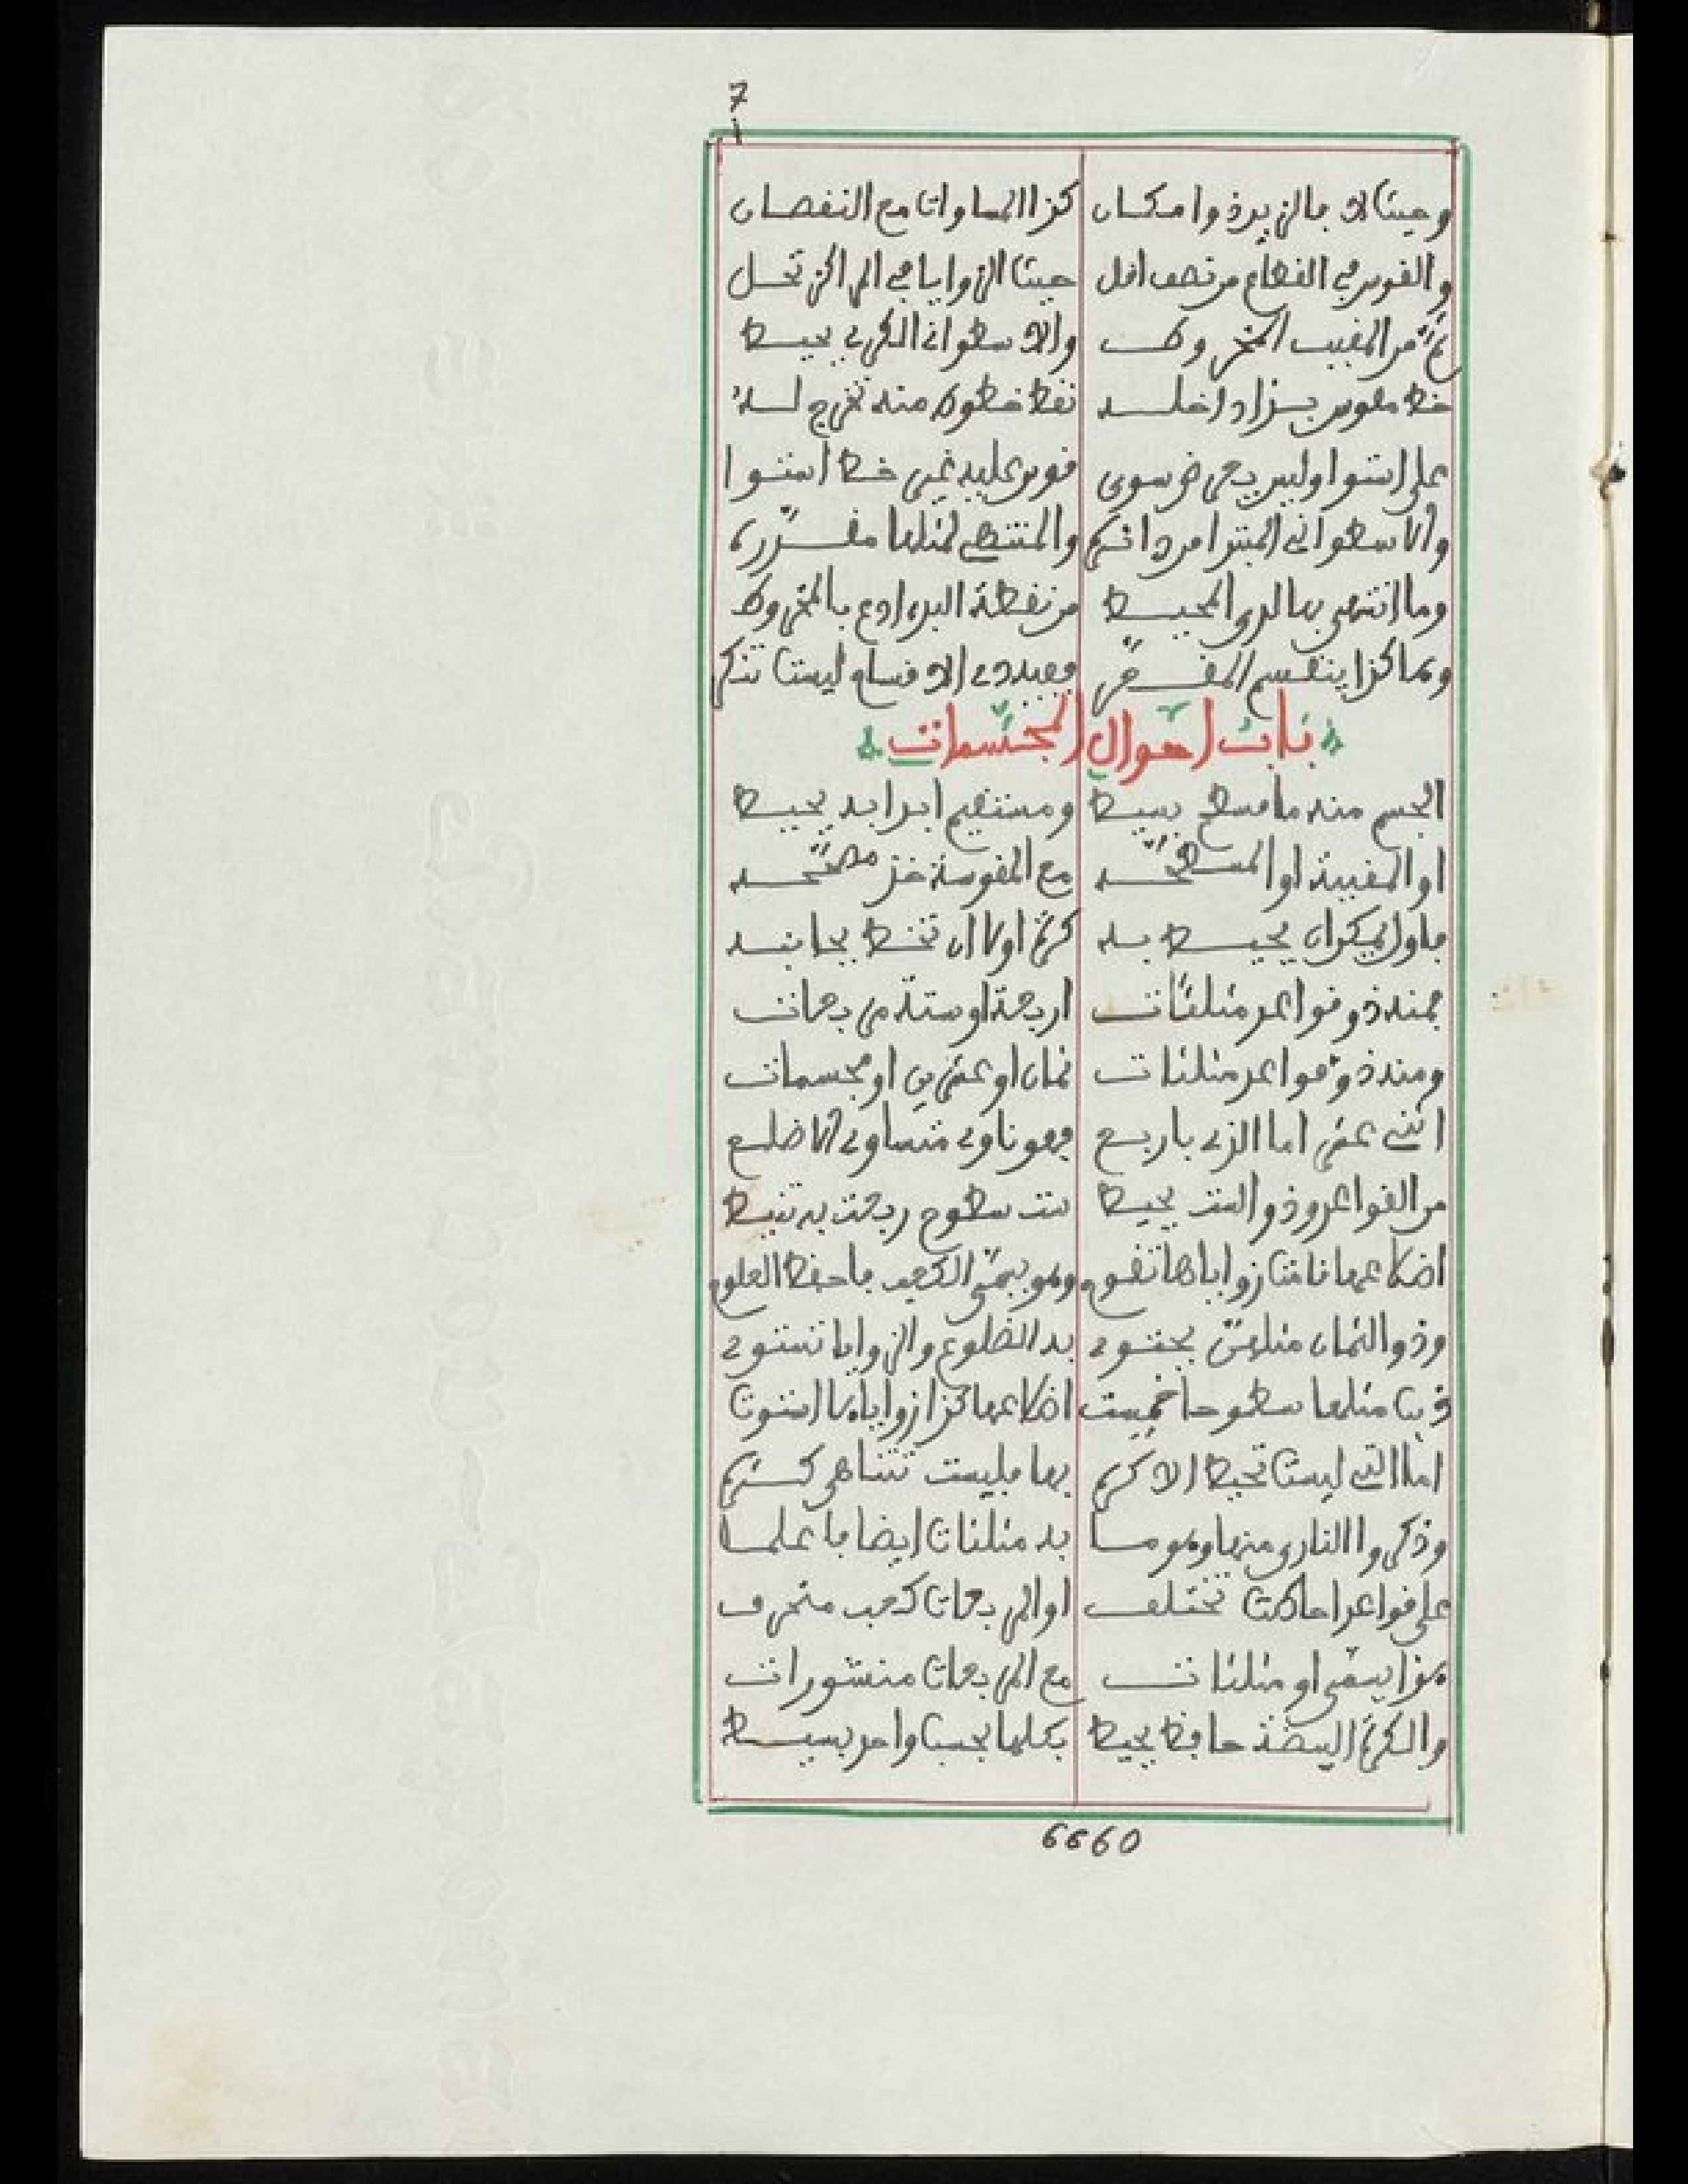 7
وحيث لا فالزيد ذو امكان كذا المساوات مع النقصان
والقوس في القطاع من نصف اقل حيث الزوايا في المركز تحل
ثم من المقبب المخروط والاسطواني الكري يحيط
خط مقوس بذا داخله نقط خطوط منه تخرج له
على استوا وليس يدعى ذو سوى قوس عليه غير خط استوا
والاسطواني المبتدا من دائره والمنتهى لمثلها مقرره
وما انتهى بها لدى المحيط من نقطة البدء ادع بالمخروط
وهاكذا ينقسم المقعر فهذه الاقسام ليست تذكر
باب احوال المجسمات
الجسم منه ما مسطح بسيط ومستقيم ابدا به يحيط
او المقببة او المسطحه مع المقوسة خذ مصححه
فاول يمكن ان يحيط به كرة اولا ان تخط بجانبه
فمنه ذو قواعد مثلثات اربعة او ستة مربعات
ومنه ذو قواعد مثلثات ثمان او عشرين او مجسمات
اثني عشر اما الذي باربع فهو ناري متساوي الاضلع
من القواعد وذو الست يحيط ست سطوح ربعت به تنيط
اضلاعها قامت زواياها تقوم وهو يسمى الكعب فاحفظ العلوم
وذو الثمان مثلهن يحتوي به الضلوع والزوايا تستوي
وذيت مثلها سطوحا خمست اضلاعها كذا زواياها استوت
اما التي ليست تحيط الاكره بها فليست تتناهى كثره
وذكروا الناري منها وهو ما به مثلثات ايضا فاعلما
على قواعد احاطت تختلف او المربعات كعب منحرف
هذا يسمى او مثلثات مع المربعات منشورات
والكرة البيضة حافظ يحيط بكلها بحسب واحد بسيط
6660